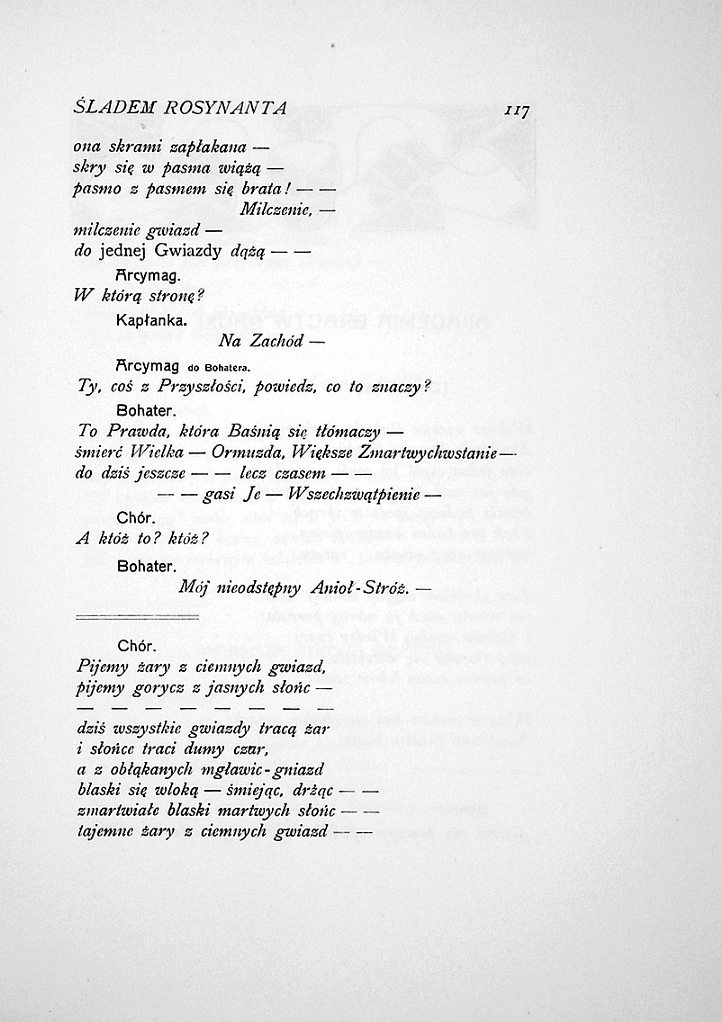 ŚLADEM ROSYNANTA 117
ona skrami zapłakana —
skry się w pasma wiążą —
pasmo z pasmem się brata! — —
Milczenie, —
milczenie gwiazd —
do jednej Gwiazdy dążą — —
Arcymag.
W którą stronę?
Kapłanka.
Na Zachód —
Arcymag do Bohatera.
Ty, coś z Przyszłości, powiedz, co to znaczy?
Bohater.
To Prawda, która Baśnią się tłómaczy —
śmierć Wielka — Ormuzda, Większe Zmartwychwstanie —
do dziś jeszcze — — lecz czasem — —
— — gasi Je — Wszechzwątpienie —
Chór.
A któż to? któż?
Bohater.
Mój nieodstępny Anioł-Stróż. —
Chór.
Pijemy żary z ciemnych gwiazd,
pijemy gorycz z jasnych słońc —
— — — — — — — —
dziś wszystkie gwiazdy tracą żar
i słońce traci dumy czar,
a z obłąkanych mgławic-gniazd
blaski się wloką — śmiejąc, drżąc — —
zmartwiałe blaski martwych słońc — —
tajemne żary z ciemnych gwiazd — —